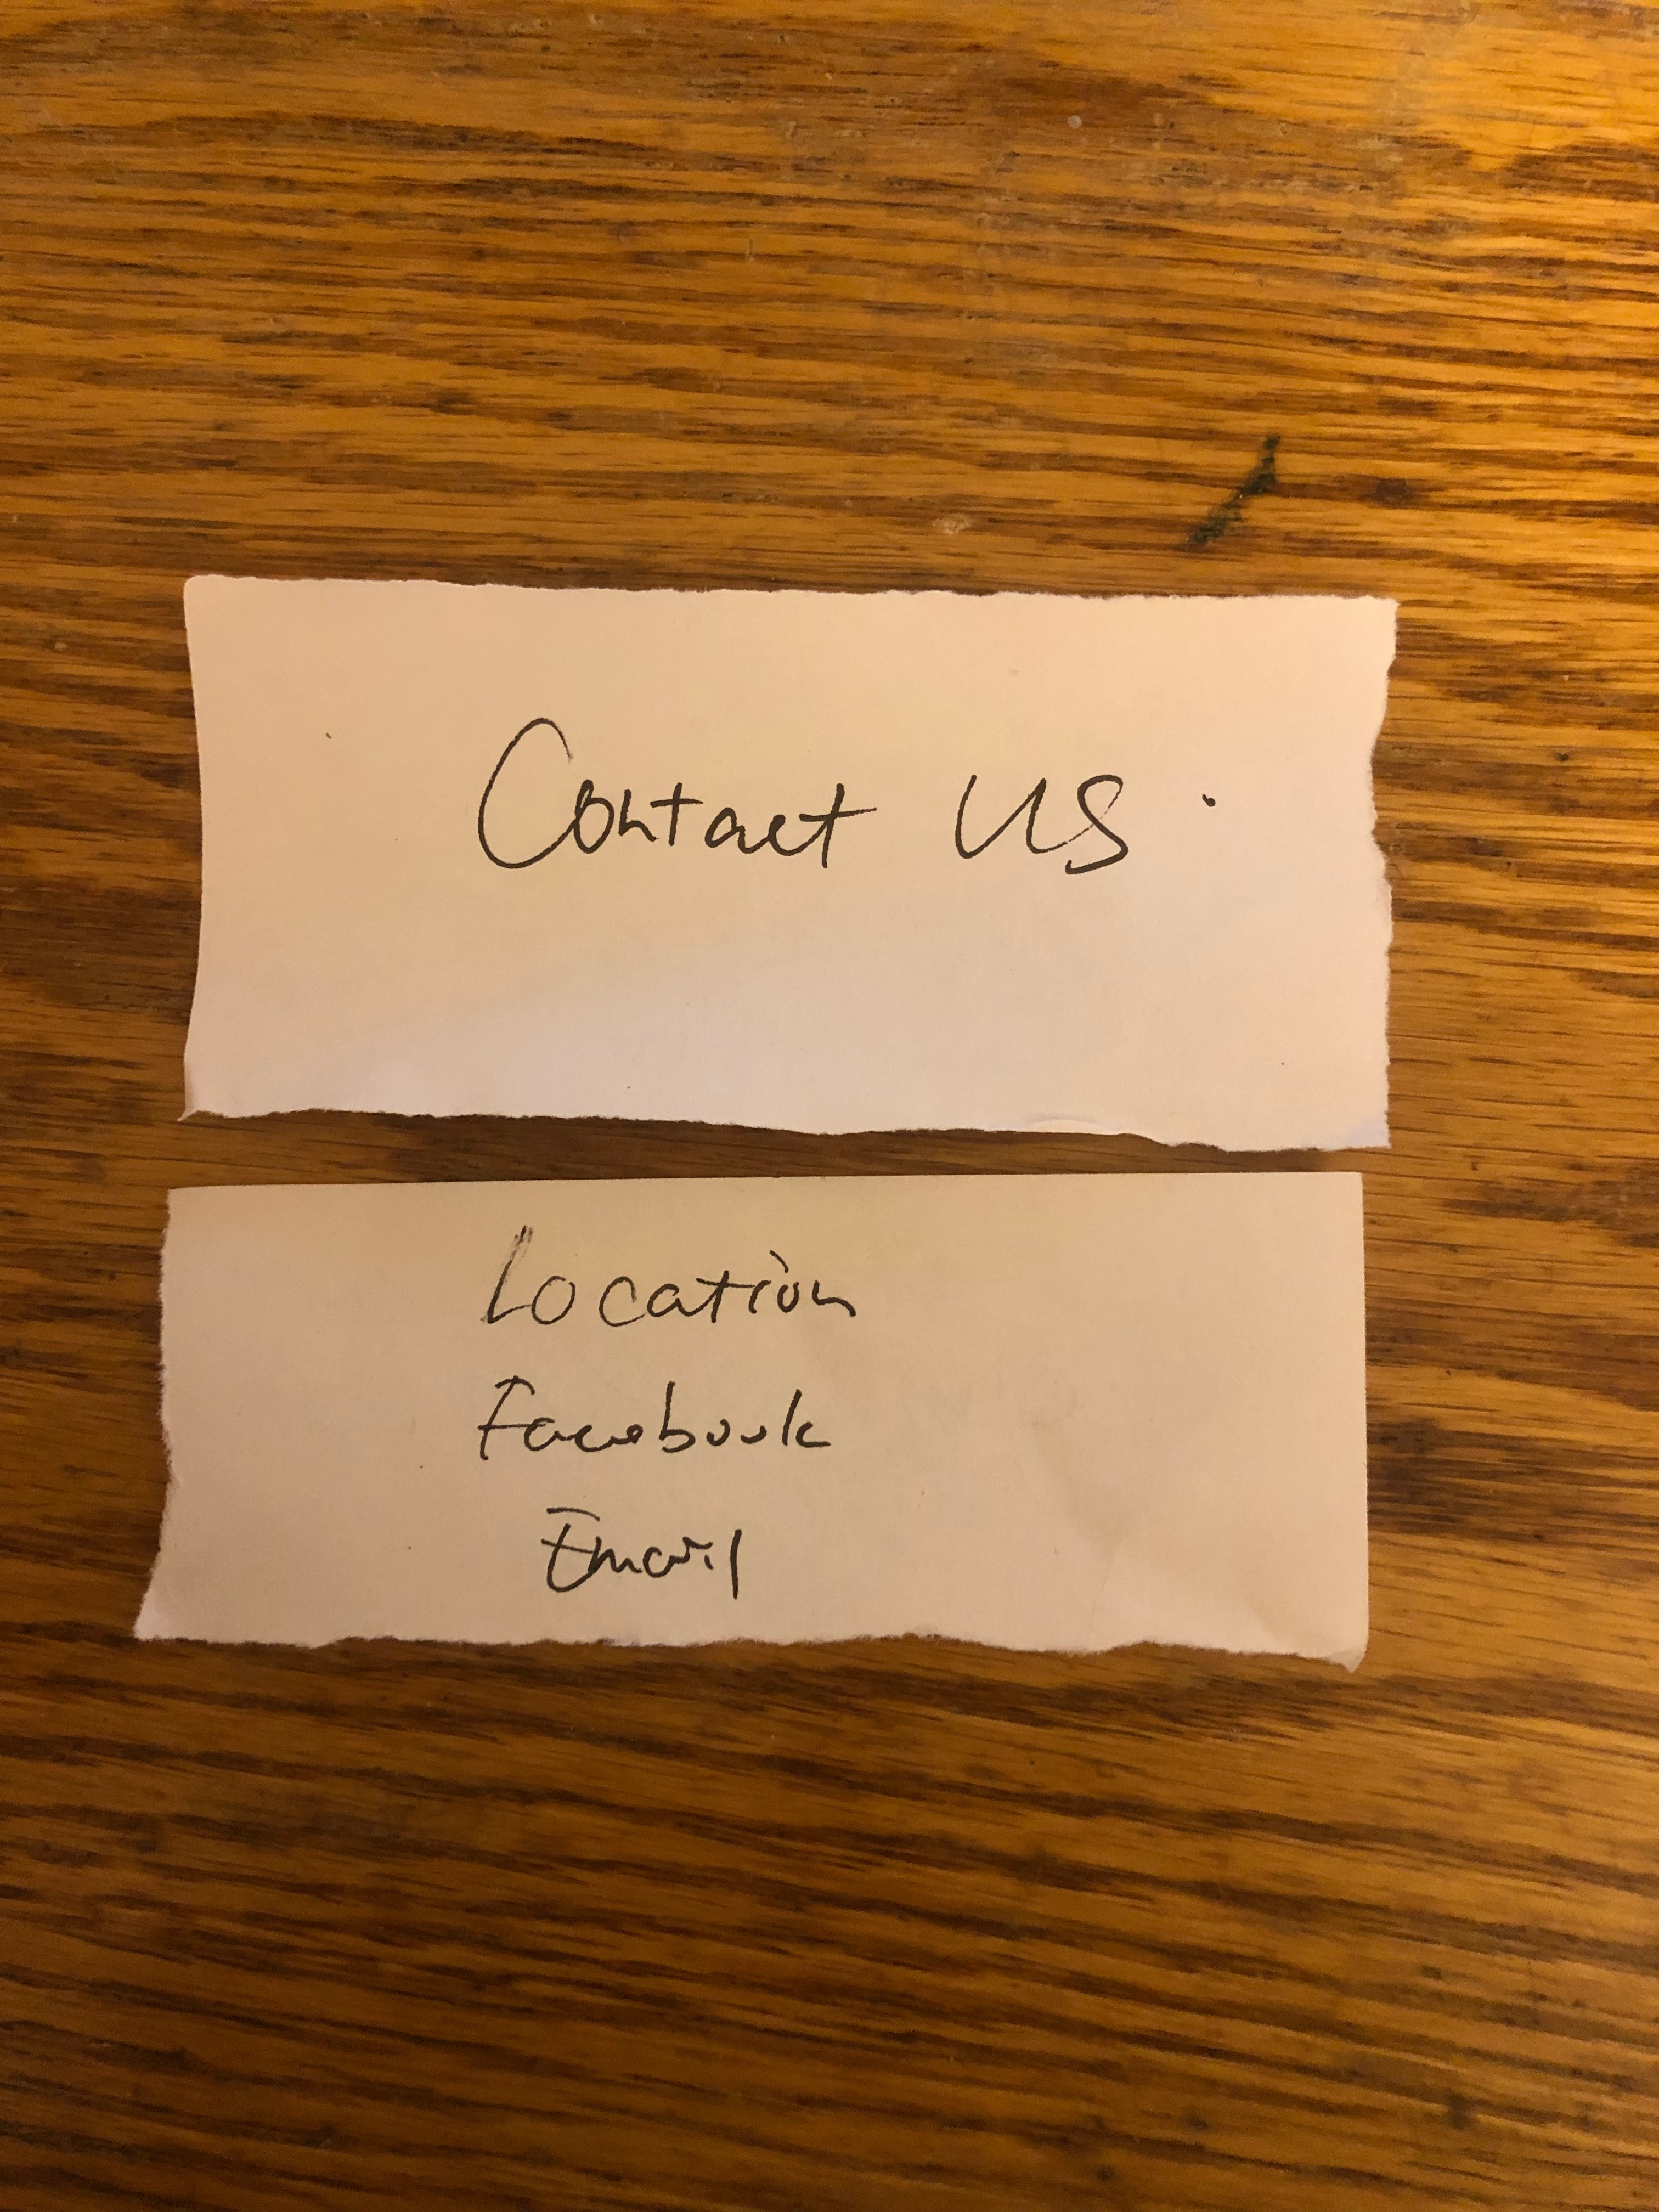 Contact us
Location
Facebook
Email